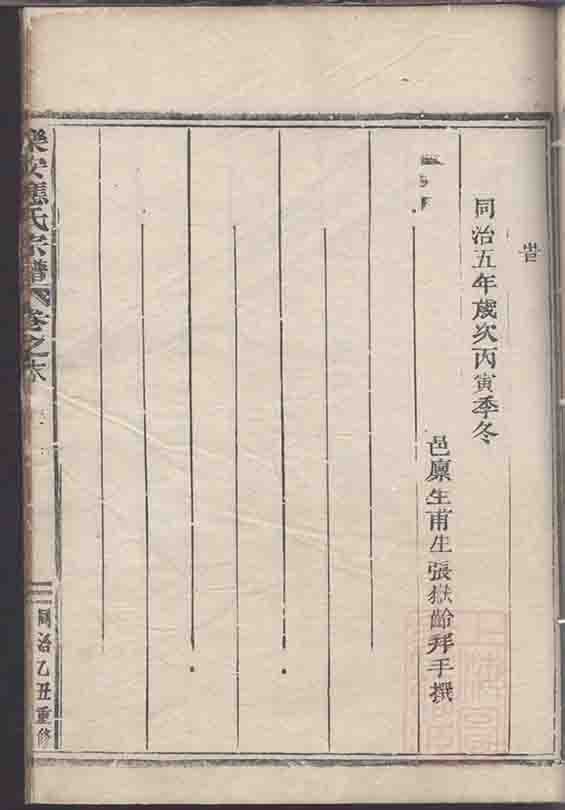 同治五年歲次丙寅季冬
邑廩生甫生張嶽齡拜手撰
樂安應氏宗譜 卷之末
同治乙丑重修